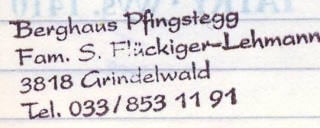 Berghaus Pfingstegg
Fam. S. Flückiger-Lehmann
3818 Grindelwald
Tel. 033/853 11 91